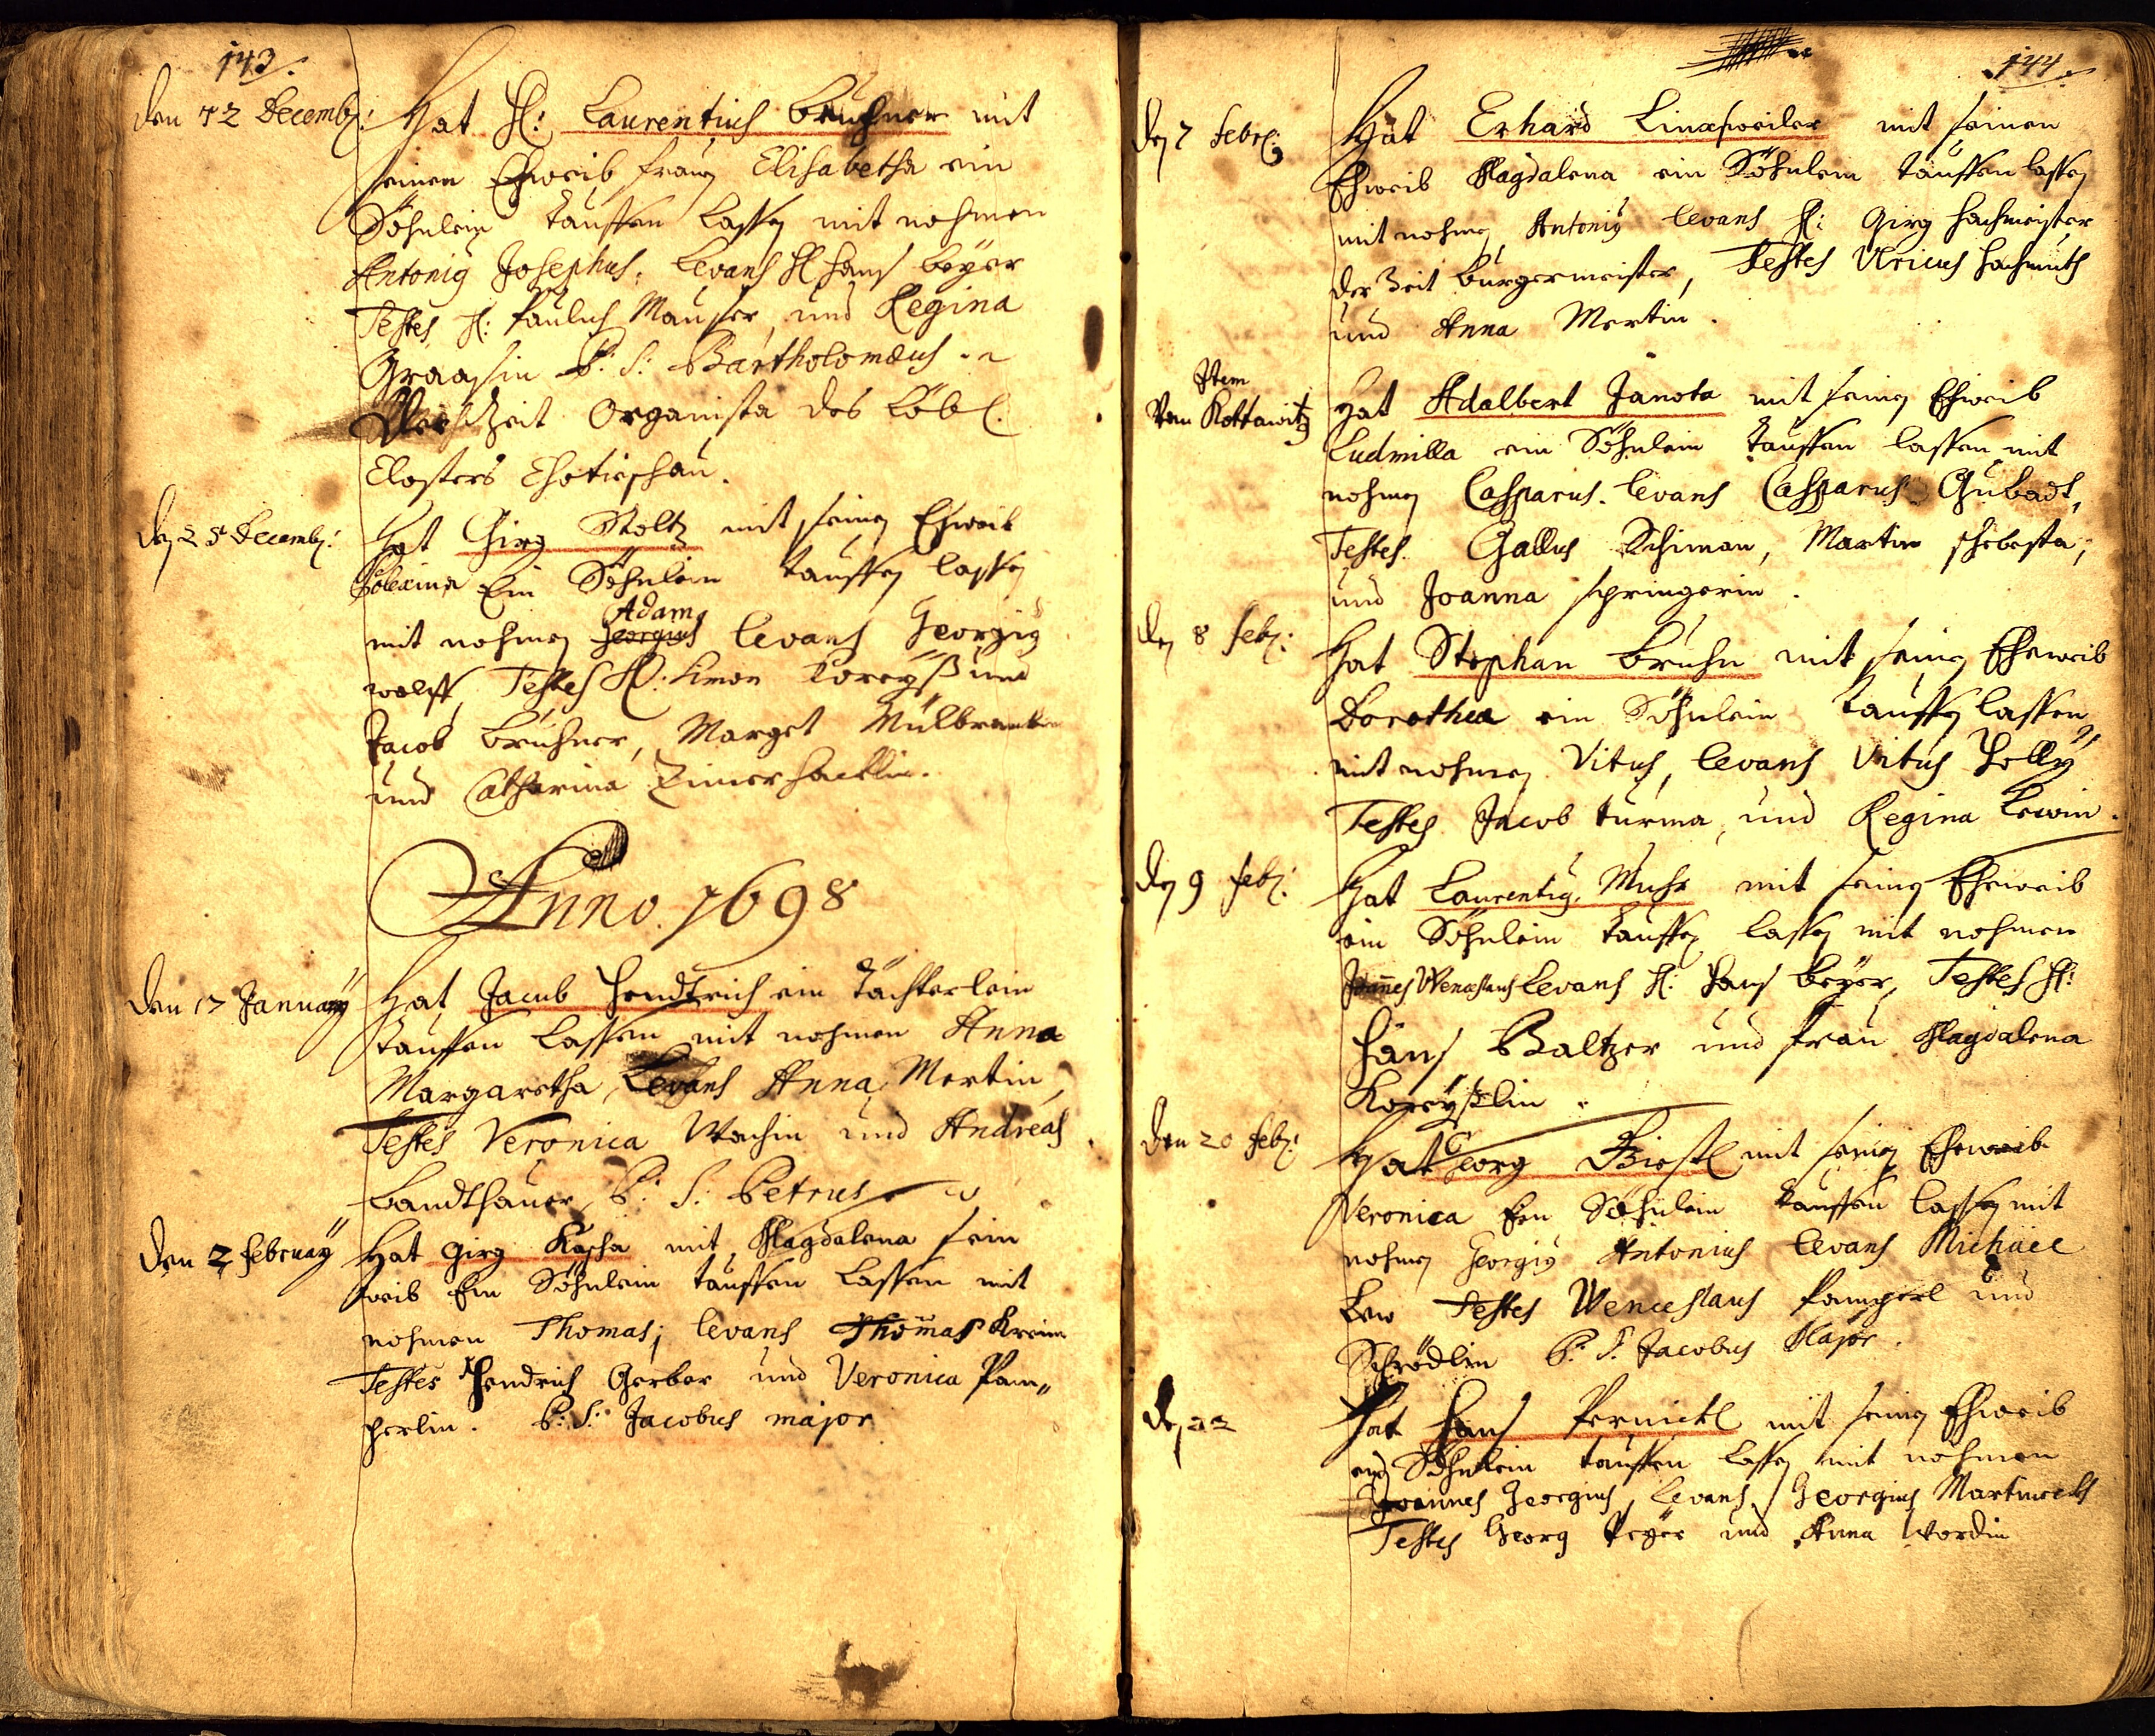 143.
den 12 Decemb: Hat H: Laurentius Bruhner mit
seinen Eheweib frauen Elisabetha ein
Söhnlein tauffen lassen mit nohmen
Antonius Josephus. Levans H Hans Beyer
Testes H: Paulus Mausser, und Regina
Graassin P: S: Bartholomæus
Zeit Organista des Löbl.
Closters Chotieschau.
den 25 Decemb: Hat Girg Stoltz mit seinen Eheweib
Polexina Ein Söhnlein tauffen lassen
Adam
mit nohmen Georgius Levans Georgius
wolff, Testes H: Simon Koreyß und
Jacob Bruhner, Marget
und Catharina Zimerhacklin.
Anno. 1698
den 17 January Hat Jacub Hendrich ein Tächterlein
tauffen lassen mit nohmen Anna
Margaretha, Levans Anna Mertin,
Testes Veronica Wachin und Andreas
Bandthauer, P: S: Petrus
den 2 february Hat Girg Kascha mit Magdalena sein
weib Ein Söhnlein tauffen lassen mit
nohmen Thomas; Levans Thomas Kreim
Testes Hendrich Gerber und Veronica Pam„
perlin. P: S: Jacobus major
144.
den 7 febr: Hat Erhard Linxsweiler mit seinen
Eheweib Magdalena ein Söhnlein tauffen lassen
mit nohmen Antonius Levans H: Girg Hachmeister
der Zeit burgermeister, Testes Ulricus Hachmuth
und Anna Mertin.
Item
Von Kottawitz Hat Adalbert Janota mit seinen Eheweib
Ludmilla ein Söhnlein tauffen lassen mit
nohmen Casparus. Levans Casparus Gubadt,
Testes. Gallus Schiman, Martin Schebesta,
und Joanna Springerin.
den 8 feb: Hat Stephan Bruhn mit seinen Eheweib
Dorothea ein Söhnlein tauffen lassen
mit nohmen Vitus, Levans Vitus Polly
Testes Jacob Turma, und Regina Lewin.
den 9 feb: Hat Laurentius Muhr mit seinen Eheweib
ein Söhnlein tauffen lassen mit nohmen
Joannes Wenceslaus Levans H: Hans Beyer, Testes H:
Hans Baltzer und frau Magdalena
Koreyßlin.
den 20 feb: Hat Georg Biestl mit seinen Eheweib
Veronica Ein Söhnlein tauffen lassen mit
nohmen Georgius Antonius Levans Michael
Lew Testes Wenceslaus Pamperl und
Schrödlin P: S: Jacobus Major.
den 22 Hat Hans Pernickl mit seinen Eheweib
ein Söhnlein tauffen lassen mit nohmen
Joannes Georgius, Levans Georgius Martineck
Testes Georg Peyer und Anna Wordin